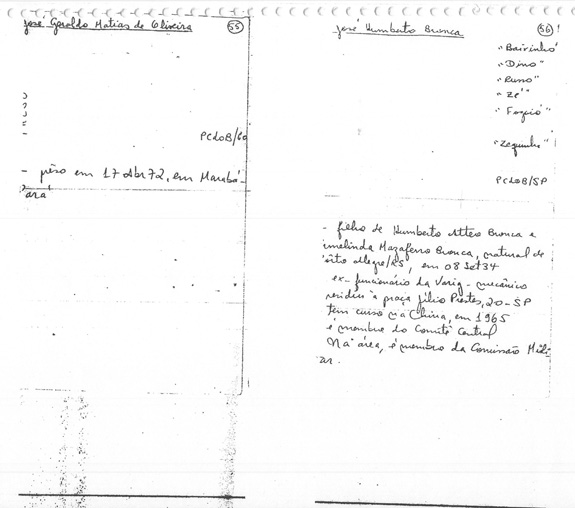 José Geraldo Matias de Oliveira
55
PCdoB/
- prêso em 17 Abr 72, em Marabá-
ará
José Humberto Bronca
56
"Bairinho"
"Dino"
"Russo"
"Zé"
"Fogoió"
"Zequinha"
PCdoB/SP
- filho de Humberto Atteo Bronca e
imelinda Mazaferro Bronca, natural de
ôrto Alegre/RS, em 08 Set 34
ex-funcionário da Varig - mecânico
residiu à praça Júlio Prestes, 20-SP
tem curso na China, em 1965
é membro do Comitê Central
Na área, é membro da Comissão Mili-
ar.